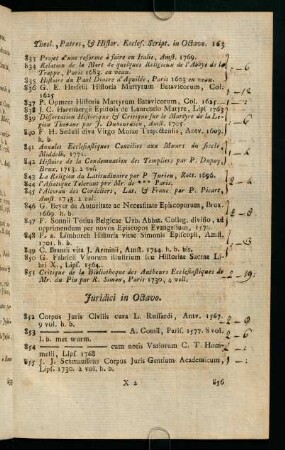 Theol. Patres, & Histor. Eccles. Script. in Octavo. 163
833 Projet d'une reforme à faire en Italie, Amst. 1769.
834 Relation de la Mort de quelques Religieux de l'Abbye de la
Trappe, Paris 1683. en veau.
835 Histoire du Paul Diacre d'Aquilée, Paris 1603 en veau.
836 G. E. Historia Martyrum Batavicorum, Col.
1625
837 P. Opmeer Historia Martyrum Batavicorum, Col. 1625
838 J. C. Epistola de Laurentio Martyre, Lips. 1763
839 Dissertation Historique & Critique sur le Martyre de la Le-
gion Thebane par J. Dubourdieu, Amst. 1705
840 P. H. Seduli diva Virgo Mosae Trajectensis, Antv. 1609.
h. b.
841 Annales Ecclesiastiques Conciles aux Moeurs du Siecle,
Middelb. 1771.
842 Histoire de la Condemnation des Templiers par P. Dupuy,
Brux. 1713. 2 vol.
843 La Religion du Latitudinaire par P. Jurieu, Rott. 1696.
844 l'Asiatique Tolerant par Mr. de *** Paris.
845 l'Alcoran des Cordeliers, Lat. & Franc. par P. Picart,
Amst. 1743. 2 vol.
846 G. Beyer de Autoritate ac Necessitate Episcoporum, Brux.
1669. h. b.
847 F. Sonnii Totius Belgicae Urb. Abbat. Colleg. divisio, ad
opprimendum per novos Episcopos Evangelium, 1570.
848 P. a Limborch Historia vitae Simonis Episcopii, Amst.
1701. h. b.
849 C. Brantii vita J. Arminii, Amst. 1724. h. b. bis.
850 G. Fabricii Virorum illustrium seu Historiae Sacrae Li-
bri X., Lips. 1564.
851 Critique de la Bibliotheque des Autheurs Ecclesiastiques de
Mr. du Pin par R. Simon, Paris 1730. 4 vol.
Juridici in Octavo.
852 Corpus Juris Civilis cura L. Russardi, Antv. 1567.
9 vol. h. b.
853 A. Contii, Paris. 1577. 8 vol.
l. b. met worm.
854 cum notis Variorum C. T. Hom-
melii, Lips. 1768
855 J. J. Schmaussens Corpus Juris Gentium Academicum,
Lips. 1730. 2 vol. h. b.
X 2 856